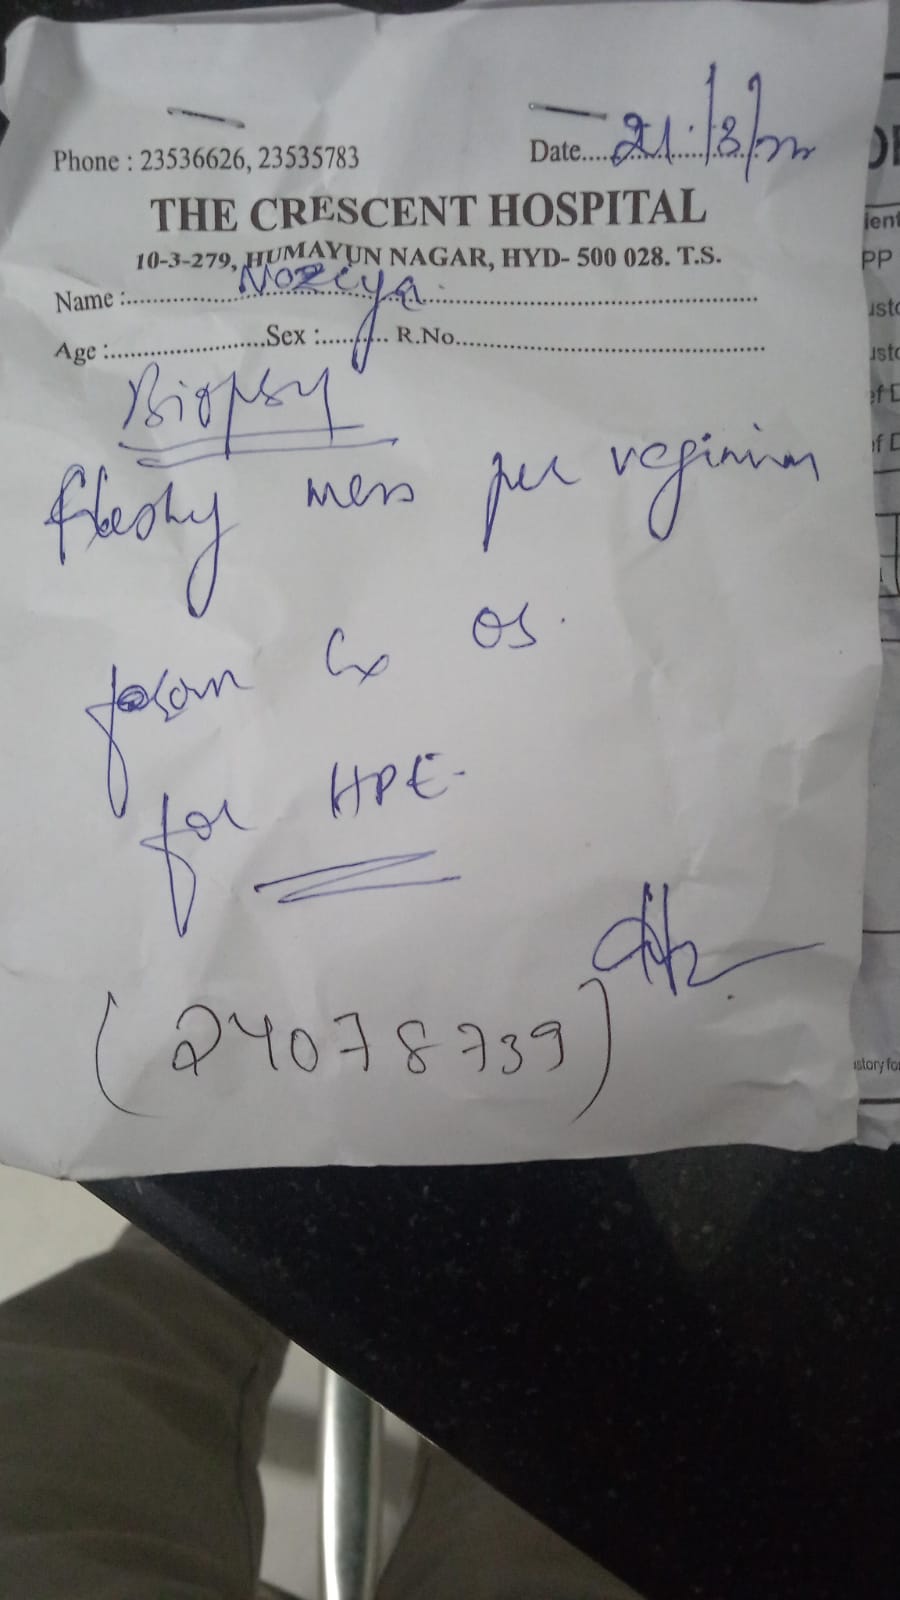 Phone : 23536626, 23535783
Date....21/3/22
THE CRESCENT HOSPITAL
10-3-279, HUMAYUN NAGAR, HYD- 500 028. T.S.
Name :........Noziya........
Age :........Sex :........ R.No........
Biopsy
fleshy mass per veginium
from Cx OS.
for HPE-
(24078739)
ient
PP
usto
usto
ef D
of D
istory for